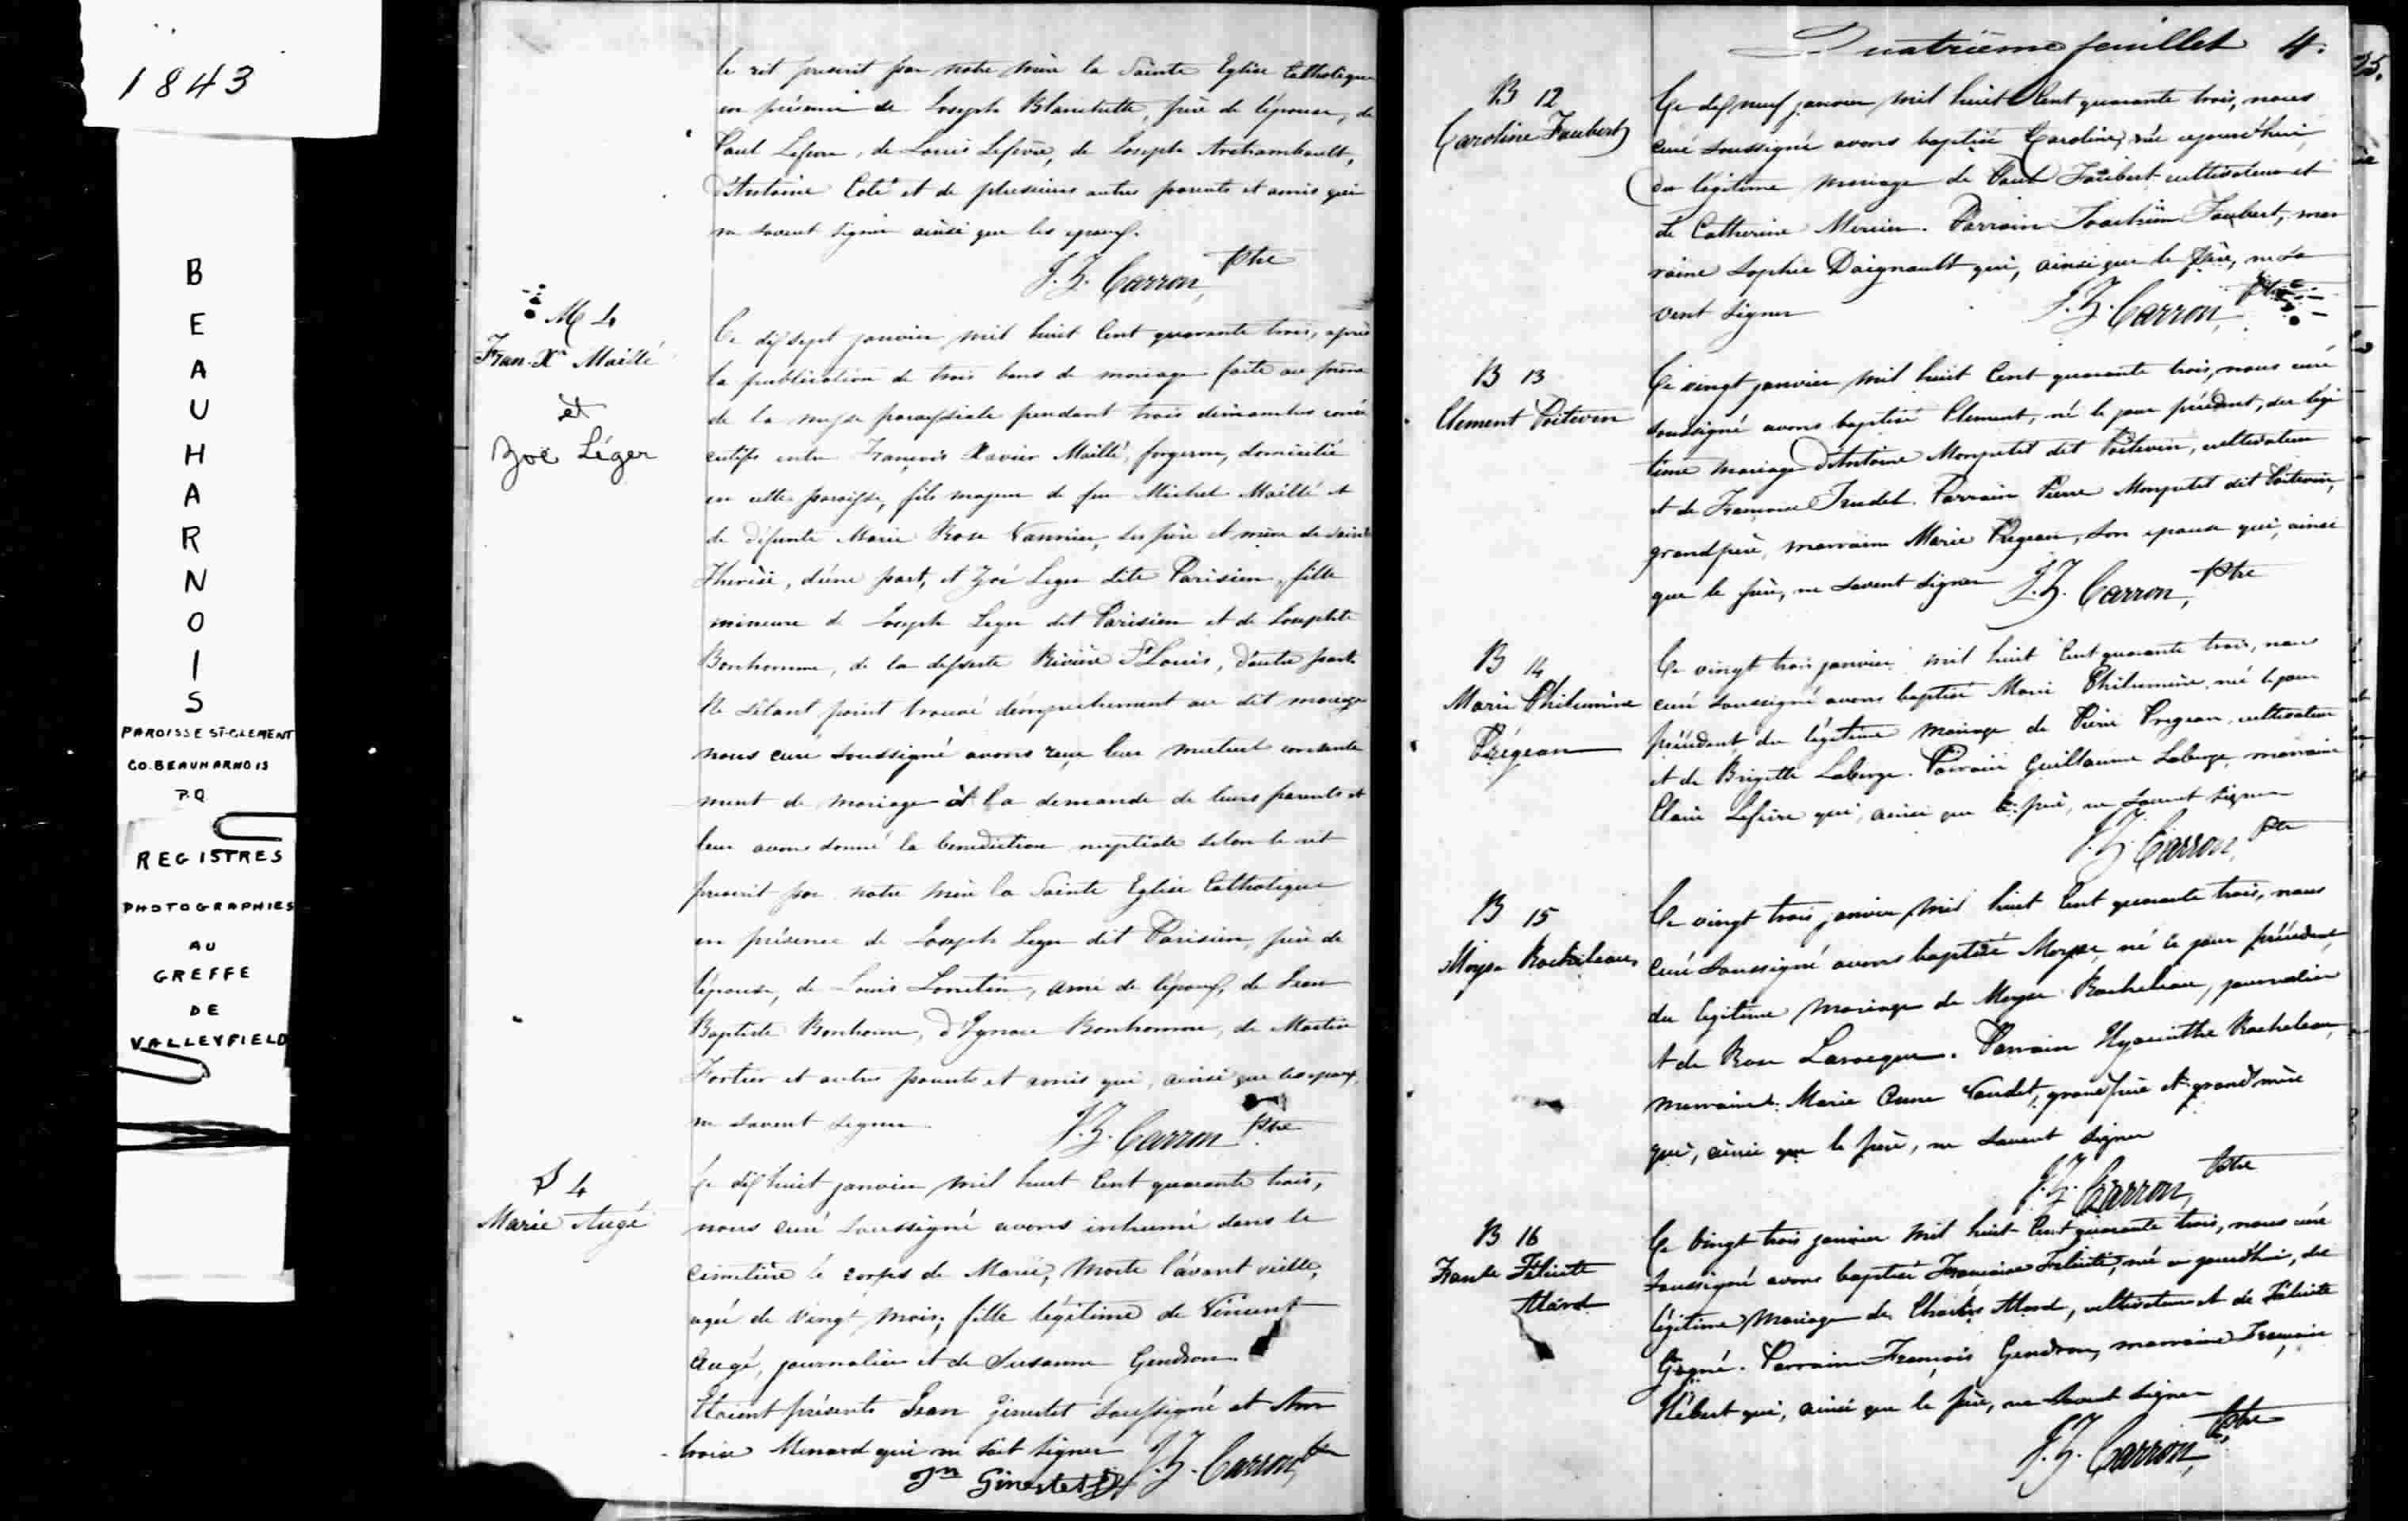 1843
B
E
A
U
H
A
R
N
O
I
S
PAROISSE ST-CLEMENT
CO. BEAUHARNOIS
P.Q.
REGISTRES
PHOTOGRAPHIES
AU
GREFFE
DE
VALLEYFIELD
le rit prescrit par notre mère la Sainte Eglise Catholique
en présence de Joseph Blanchette, père de l'épouse, de
Paul Lefevre, de Louis Lefevre, de Joseph Archambault,
d'Antoine Coté et de plusieurs autres parents et amis qui
ne savent signer ainsi que les epoux.
J. Z. Carron, Ptre
M 4
Fran. Xer Maillé
et
Zoé Léger
Ce dix sept janvier mil huit Cent quarante trois, après
la publication de trois bans de mariage faite au prône
de la messe paroissiale pendant trois dimanches consé
cutifs entre François Xavier Maillé, forgeron, domicilié
en cette paroisse, fils majeur de feu Michel Maillé et
de défunte Marie Rose Vannier, ses père et mère de Sainte
Thérèse, d'une part, et Zoé Leger dite Parisien, fille
mineure de Joseph Leger dit Parisien et de Josephte
Bonhomme, de la desserte Rivière St Louis, d'autre part
Ne s'étant point trouvé d'empechement au dit mariage
nous curé soussigné avons reçu leur mutuel consente
ment de mariage à la demande de leurs parents et
leur avons donné la benediction nuptiale selon le rit
prescrit par notre mère la Sainte Eglise Catholique
en présence de Joseph Leger dit Parisien, père de
l'épouse, de Louis Lonctin, ami de l'époux, de Jean
Baptiste Bonhomme, d'Ignace Bonhomme, de Martin
Fortier et autres parents et amis qui, ainsi que les epoux,
ne savent signer
J. Z. Carron Ptre
S 4
Marie Augé
Ce dix huit janvier mil huit Cent quarante trois,
nous curé soussigné avons inhumé dans le
cimetière le corps de Marie, morte l'avant veille,
agée de vingt mois, fille légitime de Vincent
Augé, journalier et de Susanne Gendron.
Etaient présents Jean Ginestet soussigné et Am
broise Menard qui ne sait signer J. Z. Carron Ptre
Jn Ginestet
Quatrième feuillet 4.
B 12
Caroline Faubert
Ce dix neuf janvier mil huit Cent quarante trois, nous
curé soussigné avons baptisé Caroline, née aujourd'hui,
du légitime mariage de Paul Faubert cultivateur et
de Catherine Mercier. Parrain Joachim Faubert, mar
raine Sophie Daignault qui, ainsi que le père, ne sa
vent signer
J. Z. Carron, Ptre
B 13
Clement Poitevin
Ce vingt janvier mil huit Cent quarante trois, nous curé
soussigné avons baptisé Clement, né le jour précédent, du légi
time mariage d'Antoine Monpetit dit Poitevin, cultivateur
et de Françoise Trudel. Parrain Pierre Monpetit dit Poitevin,
grandpère, marraine Marie Prégean, son epouse qui, ainsi
que le père, ne savent signer J. Z. Carron, Ptre
B 14
Marie Philumène
Prégean
Ce vingt trois janvier mil huit Cent quarante trois, nous
curé soussigné avons baptisé Marie Philumène, née le jour
précédent du légitime mariage de Pierre Prégean, cultivateur
et de Brigitte Laberge. Parrain Guillaume Laberge, marraine
Claire Lefevre qui, ainsi que le père, ne savent signer
J. Z. Carron, Ptre
B 15
Moyse Rocheleau
Ce vingt trois janvier mil huit Cent quarante trois, nous
curé soussigné avons baptisé Moyse, né le jour précédent
du légitime mariage de Moyse Racheleau, journalier
et de Rose Larocque. Parrain Hyacinthe Racheleau,
marraine Marie Anne Vaudet, grandpère et grand'mère
qui, ainsi que le père, ne savent signer
J. Z. Carron, Ptre
B 16
Franse Félicité
Allard
Ce vingt trois janvier mil huit Cent quarante trois, nous curé
soussigné avons baptisé Françoise Felicité, née aujourd'hui, du
légitime mariage de Charles Allard, cultivateur et de Félicité
Gagné. Parrain François Gendron, marraine Françoise
Hébert qui, ainsi que le père, ne savent signer
J. Z. Carron, Ptre